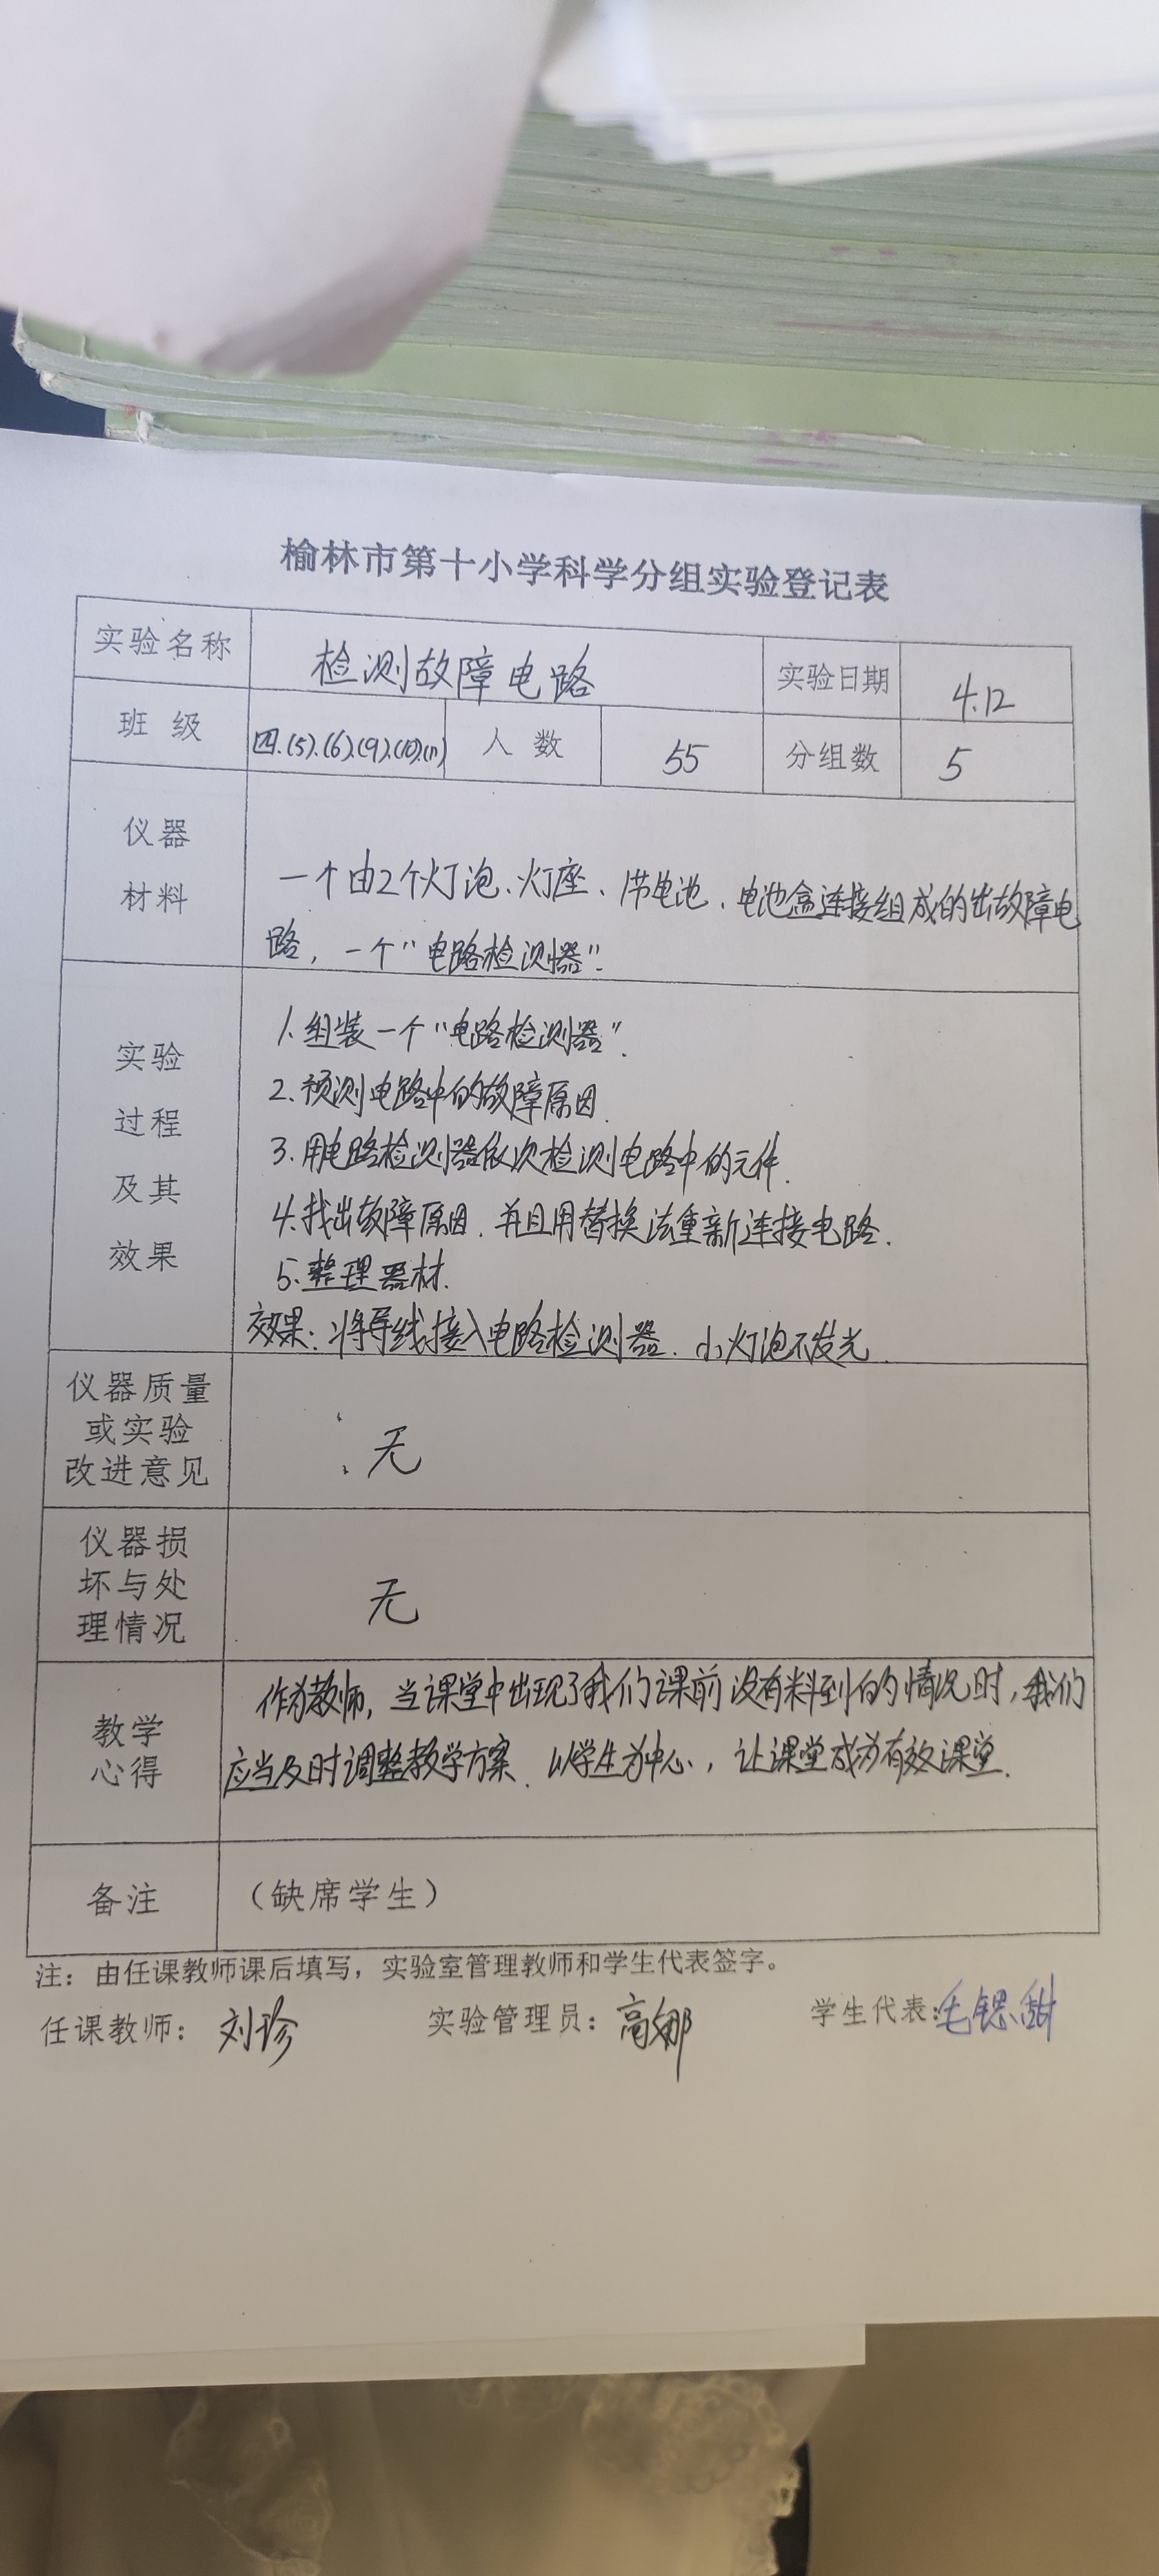 榆林市第十小学科学分组实验登记表
实验名称 检测故障电路 实验日期 4.12
班级 四.(5).(6).(9).(10).(11) 人数 55 分组数 5
仪器
材料
一个由2个灯泡、灯座、1节电池、电池盒连接组成的出故障电
路，一个“电路检测器”.
实验
过程
及其
效果
1.组装一个“电路检测器”.
2.预测电路中的故障原因.
3.用电路检测器依次检测电路中的元件.
4.找出故障原因.并且用替换法重新连接电路.
5.整理器材.
效果:将导线接入电路检测器.小灯泡不发光.
仪器质量
或实验
改进意见
无
仪器损
坏与处
理情况
无
教学
心得
作为教师,当课堂中出现了我们课前没有料到的情况时,我们
应当及时调整教学方案.以学生为中心,让课堂成为有效课堂.
备注 （缺席学生）
注：由任课教师课后填写，实验室管理教师和学生代表签字。
任课教师：刘珍 实验管理员：高娜 学生代表:毛锶甜